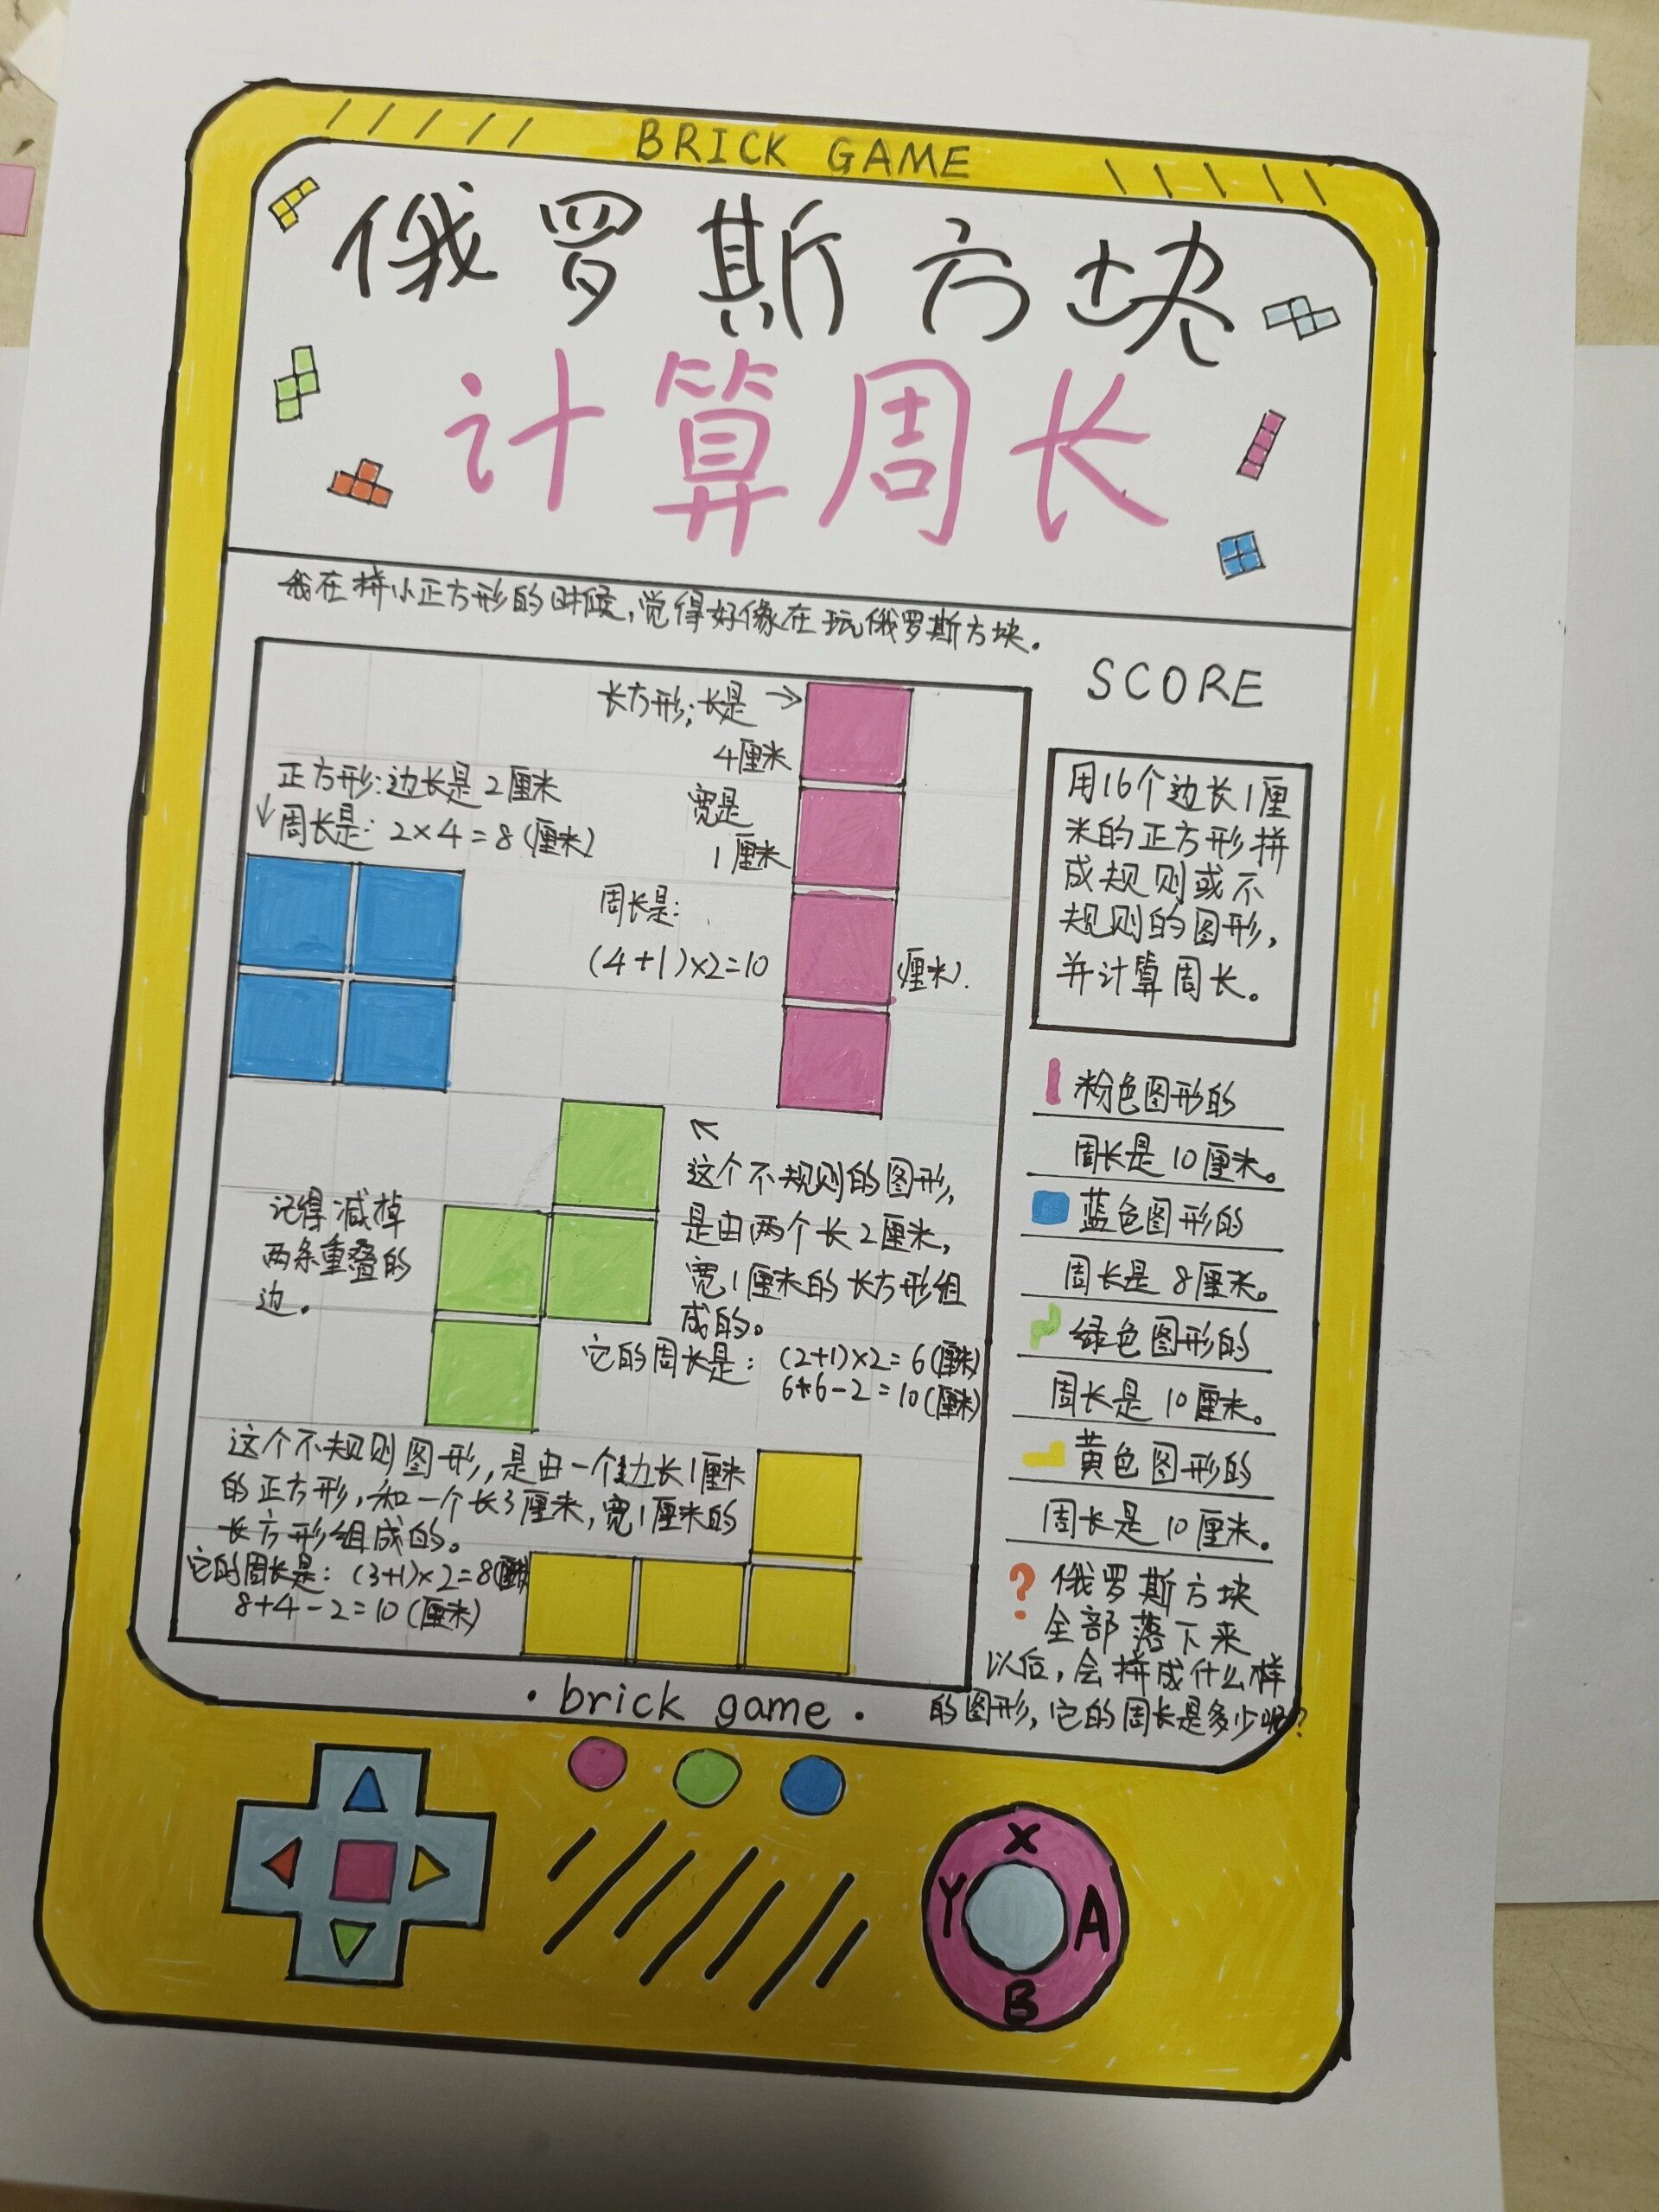 BRICK GAME
俄罗斯方块
计算周长
我在拼小正方形的时候,觉得好像在玩俄罗斯方块。
长方形:长是→
4厘米
宽是
1厘米
周长是:
(4+1)×2=10
(厘米).
正方形:边长是2厘米
↓周长是: 2×4=8(厘米)
↖
这个不规则的图形,
是由两个长2厘米,
宽1厘米的长方形组
成的。
它的周长是: (2+1)×2=6(厘米)
6+6-2=10(厘米)
记得减掉
两条重叠的
边。
这个不规则图形,是由一个边长1厘米
的正方形,和一个长3厘米,宽1厘米的
长方形组成的。
它的周长是: (3+1)×2=8(厘米)
8+4-2=10(厘米)
SCORE
用16个边长1厘
米的正方形拼
成规则或不
规则的图形,
并计算周长。
粉色图形的
周长是10厘米。
蓝色图形的
周长是8厘米。
绿色图形的
周长是10厘米。
黄色图形的
周长是10厘米。
? 俄罗斯方块
全部落下来
以后,会拼成什么样
的图形,它的周长是多少呢?
·brick game·
X
Y
A
B